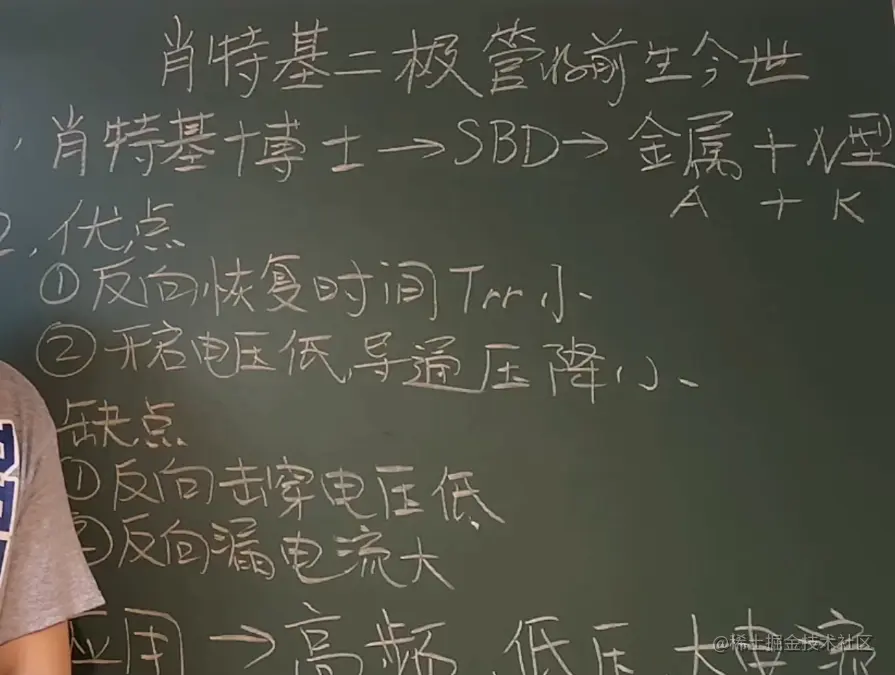 肖特基二极管的前生今世
、肖特基博士→SBD→金属+N型
A + K
2、优点
①反向恢复时间Trr小、
②开启电压低、导通压降小、
缺点
①反向击穿电压低、
②反向漏电流大
应用→高频、低压、大电流
@稀土掘金技术社区